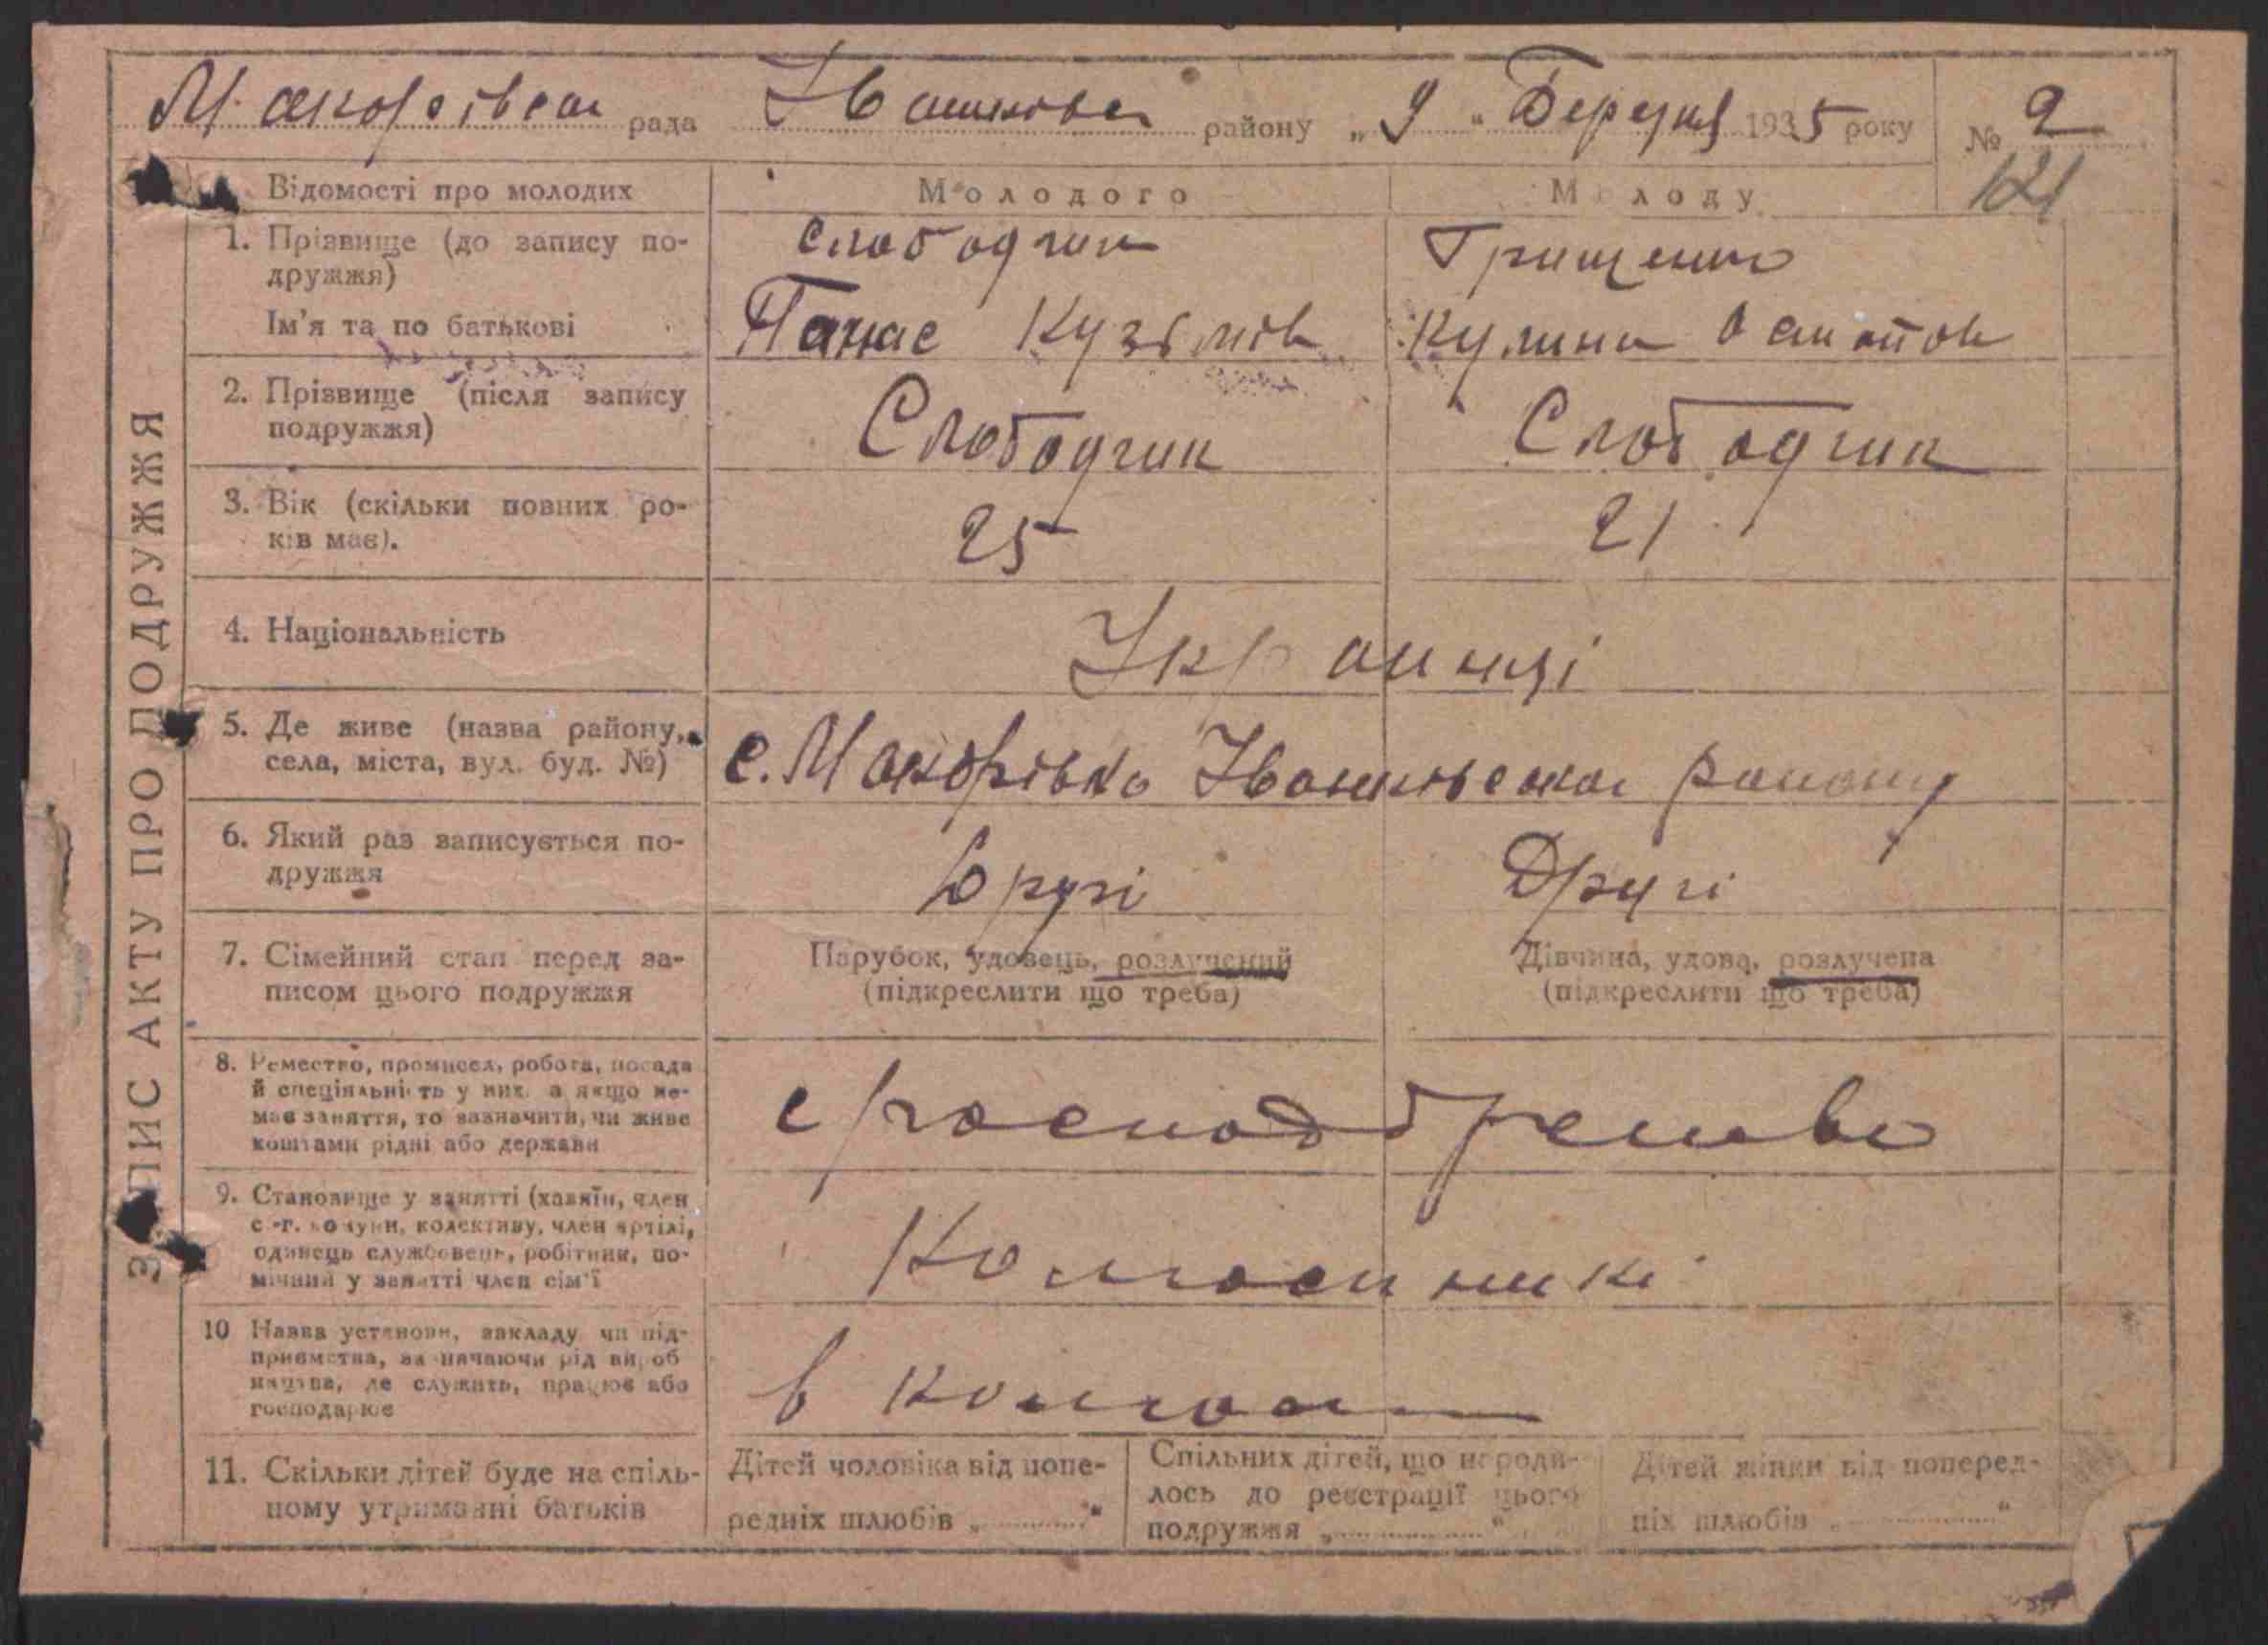 Макорівська рада Івашківськ району „9" Березня 1935 року № 2
121
ЗАПИС АКТУ ПРО ПОДРУЖЖЯ
Відомості про молодих
Молодого
Молоду
1. Прізвище (до запису по-
дружжя)
Слободчик
Грищенко
Ім'я та по батькові
Панас Кузьмів
Кулина
2. Прізвище (після запису
подружжя)
Слободчик
Слободчик
3. Вік (скільки повних ро-
ків має).
25
21
4. Національність
Українці
5. Де живе (назва району,
села, міста, вул. буд. №)
с. Макорівка району
6. Який раз записується по-
дружжя
Другі
Другі
7. Сімейний стан перед за-
писом цього подружжя
Парубок, удовець, розлучений
(підкреслити що треба)
Дівчина, удова, розлучена
(підкреслити що треба)
8. Ремество, промисел, робота, посада
й спеціяльність у них, а якщо не-
має заняття, то зазначити, чи живе
коштами рідні або держави
9. Становище у занятті (хазяїн, член
с.-г. комуни, колективу, член артілі,
одинець службовець, робітник, по-
мічний у занятті член сім'ї
Колгоспники
10 Назва установи, закладу чи під-
приємства, зазначаючи рід вироб
ництва, де служить, працює або
господарює
в колгоспі
11. Скільки дітей буде на спіль-
ному утриманні батьків
Дітей чоловіка від попе-
редніх шлюбів „ "
Спільних дітей, що народи-
лось до реєстрації цього
подружжя „ "
Дітей жінки від поперед-
ніх шлюбів „ "